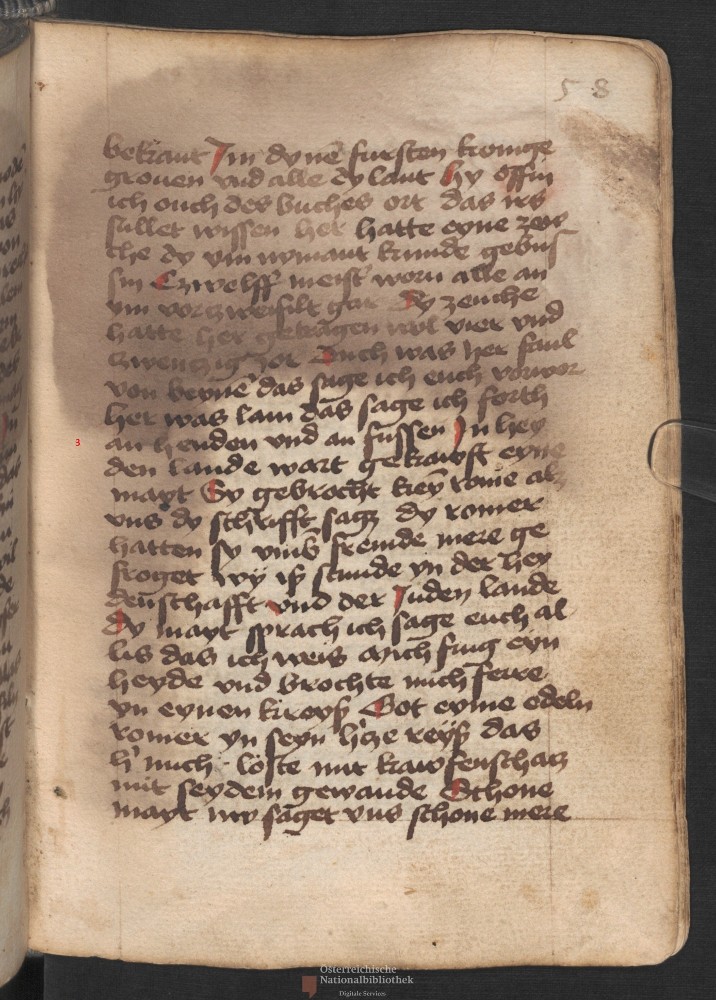 58
bekant Jn dynē fursten konige
grouen vnd alle dy lant hy offin
ich ouch des buches ort das irs
sullet wissen her hatte eyne zeu
che dy vm nymant kunde gebus
sin Czwelff meist' worn alle an
ym vorczweifilt gar Dy zeuche
hatte her getragen wol vier vnd
czwenczig Jor Ouch was her faul
von beynē das sage ich euch vorwor
her was lam das sage ich forth
an henden vnd an fussen Jn hey
3
den lande wart gekawft eyne
mayt Sy gebrocht keȳ rome alz
vns dy schrifft sagz dy romer
hatten sy vmb fremde mere ge
froget wy iß stunde yn der hey
denschafft vnd der Juden lande
Dy mayt sprach ich sage euch al
lis das ich weis Mich fing eyn
heyde vnd brochte mich ferre
yn eynen kreyß Got eyme edeln
romer yn seyn h'cze reyß das
h' mich loste mit kawfenschacz
mit seydem gewande Schone
mayt nw saget vns schone mere
Österreichische
Nationalbibliothek
Digitale Services